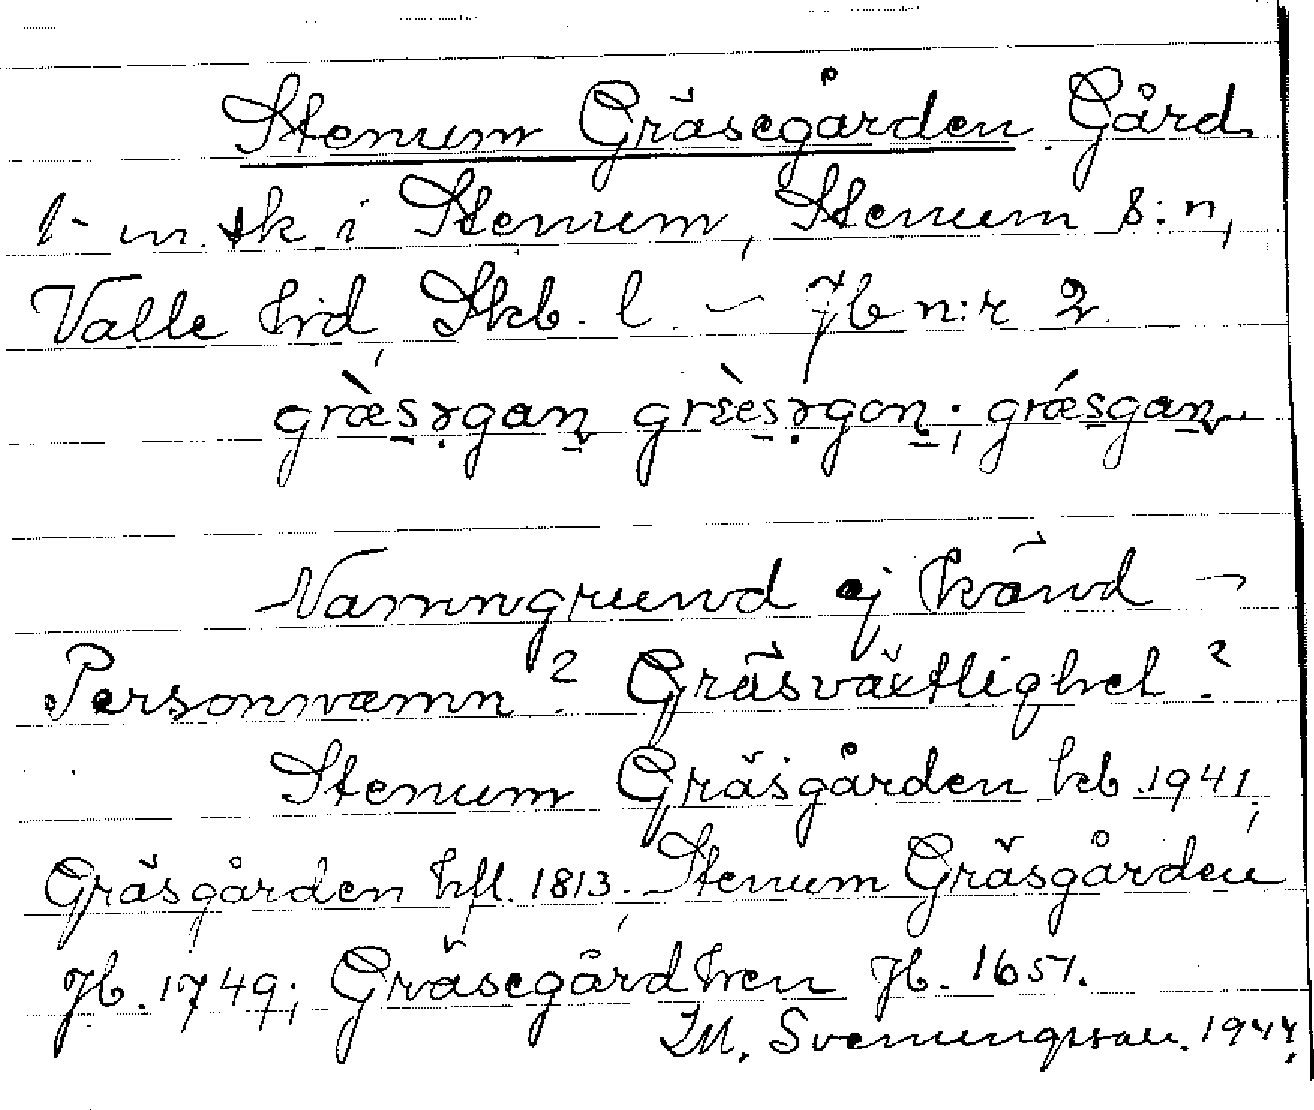 Stenum Gräsegården Gård
1 m. sk i Stenum, Stenum s:n,
Valle hd, Skb. l. – Jb n:r 2.
græ̀sәgaɳ grɛ̀esәgaɳ; grǽsgaɳ
Namngrund ej känd –
Personnamn? Gräsväxtlighet?
Stenum Gräsgården kb. 1941,
Gräsgården hfl. 1813; Stenum Gräsgården
Jb. 1749; Gräsegårdhen Jb. 1651.
Svenungsson. 1944.